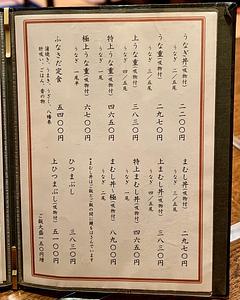 うなぎ丼(吸物付)
うなぎ 二/五尾
二二〇〇円
うな重(吸物付)
うなぎ 三/五尾
二九七〇円
上うな重(吸物付)
うなぎ 四/五尾
三八三〇円
特上うな重(吸物付)
うなぎ 一尾
四六五〇円
極上うな重(吸物付)
うなぎ 一尾半
六七〇〇円
ふなさだ定食
五四〇〇円
蒲焼き、うまき、うざく、八幡巻
肝吸い、ごはん、香の物
まむし丼(吸物付)
二九七〇円
上まむし丼(吸物付)
三八三〇円
特上まむし丼(吸物付)
四六五〇円
まむし丼〜極(吸物付)
うなぎ 二尾
八九〇〇円
※まむし丼はご飯とご飯の間に鰻をはさんでいます
ひつまぶし
三八三〇円
上ひつまぶし(吸物付)
五一〇〇円
ご飯大盛一五〇円増